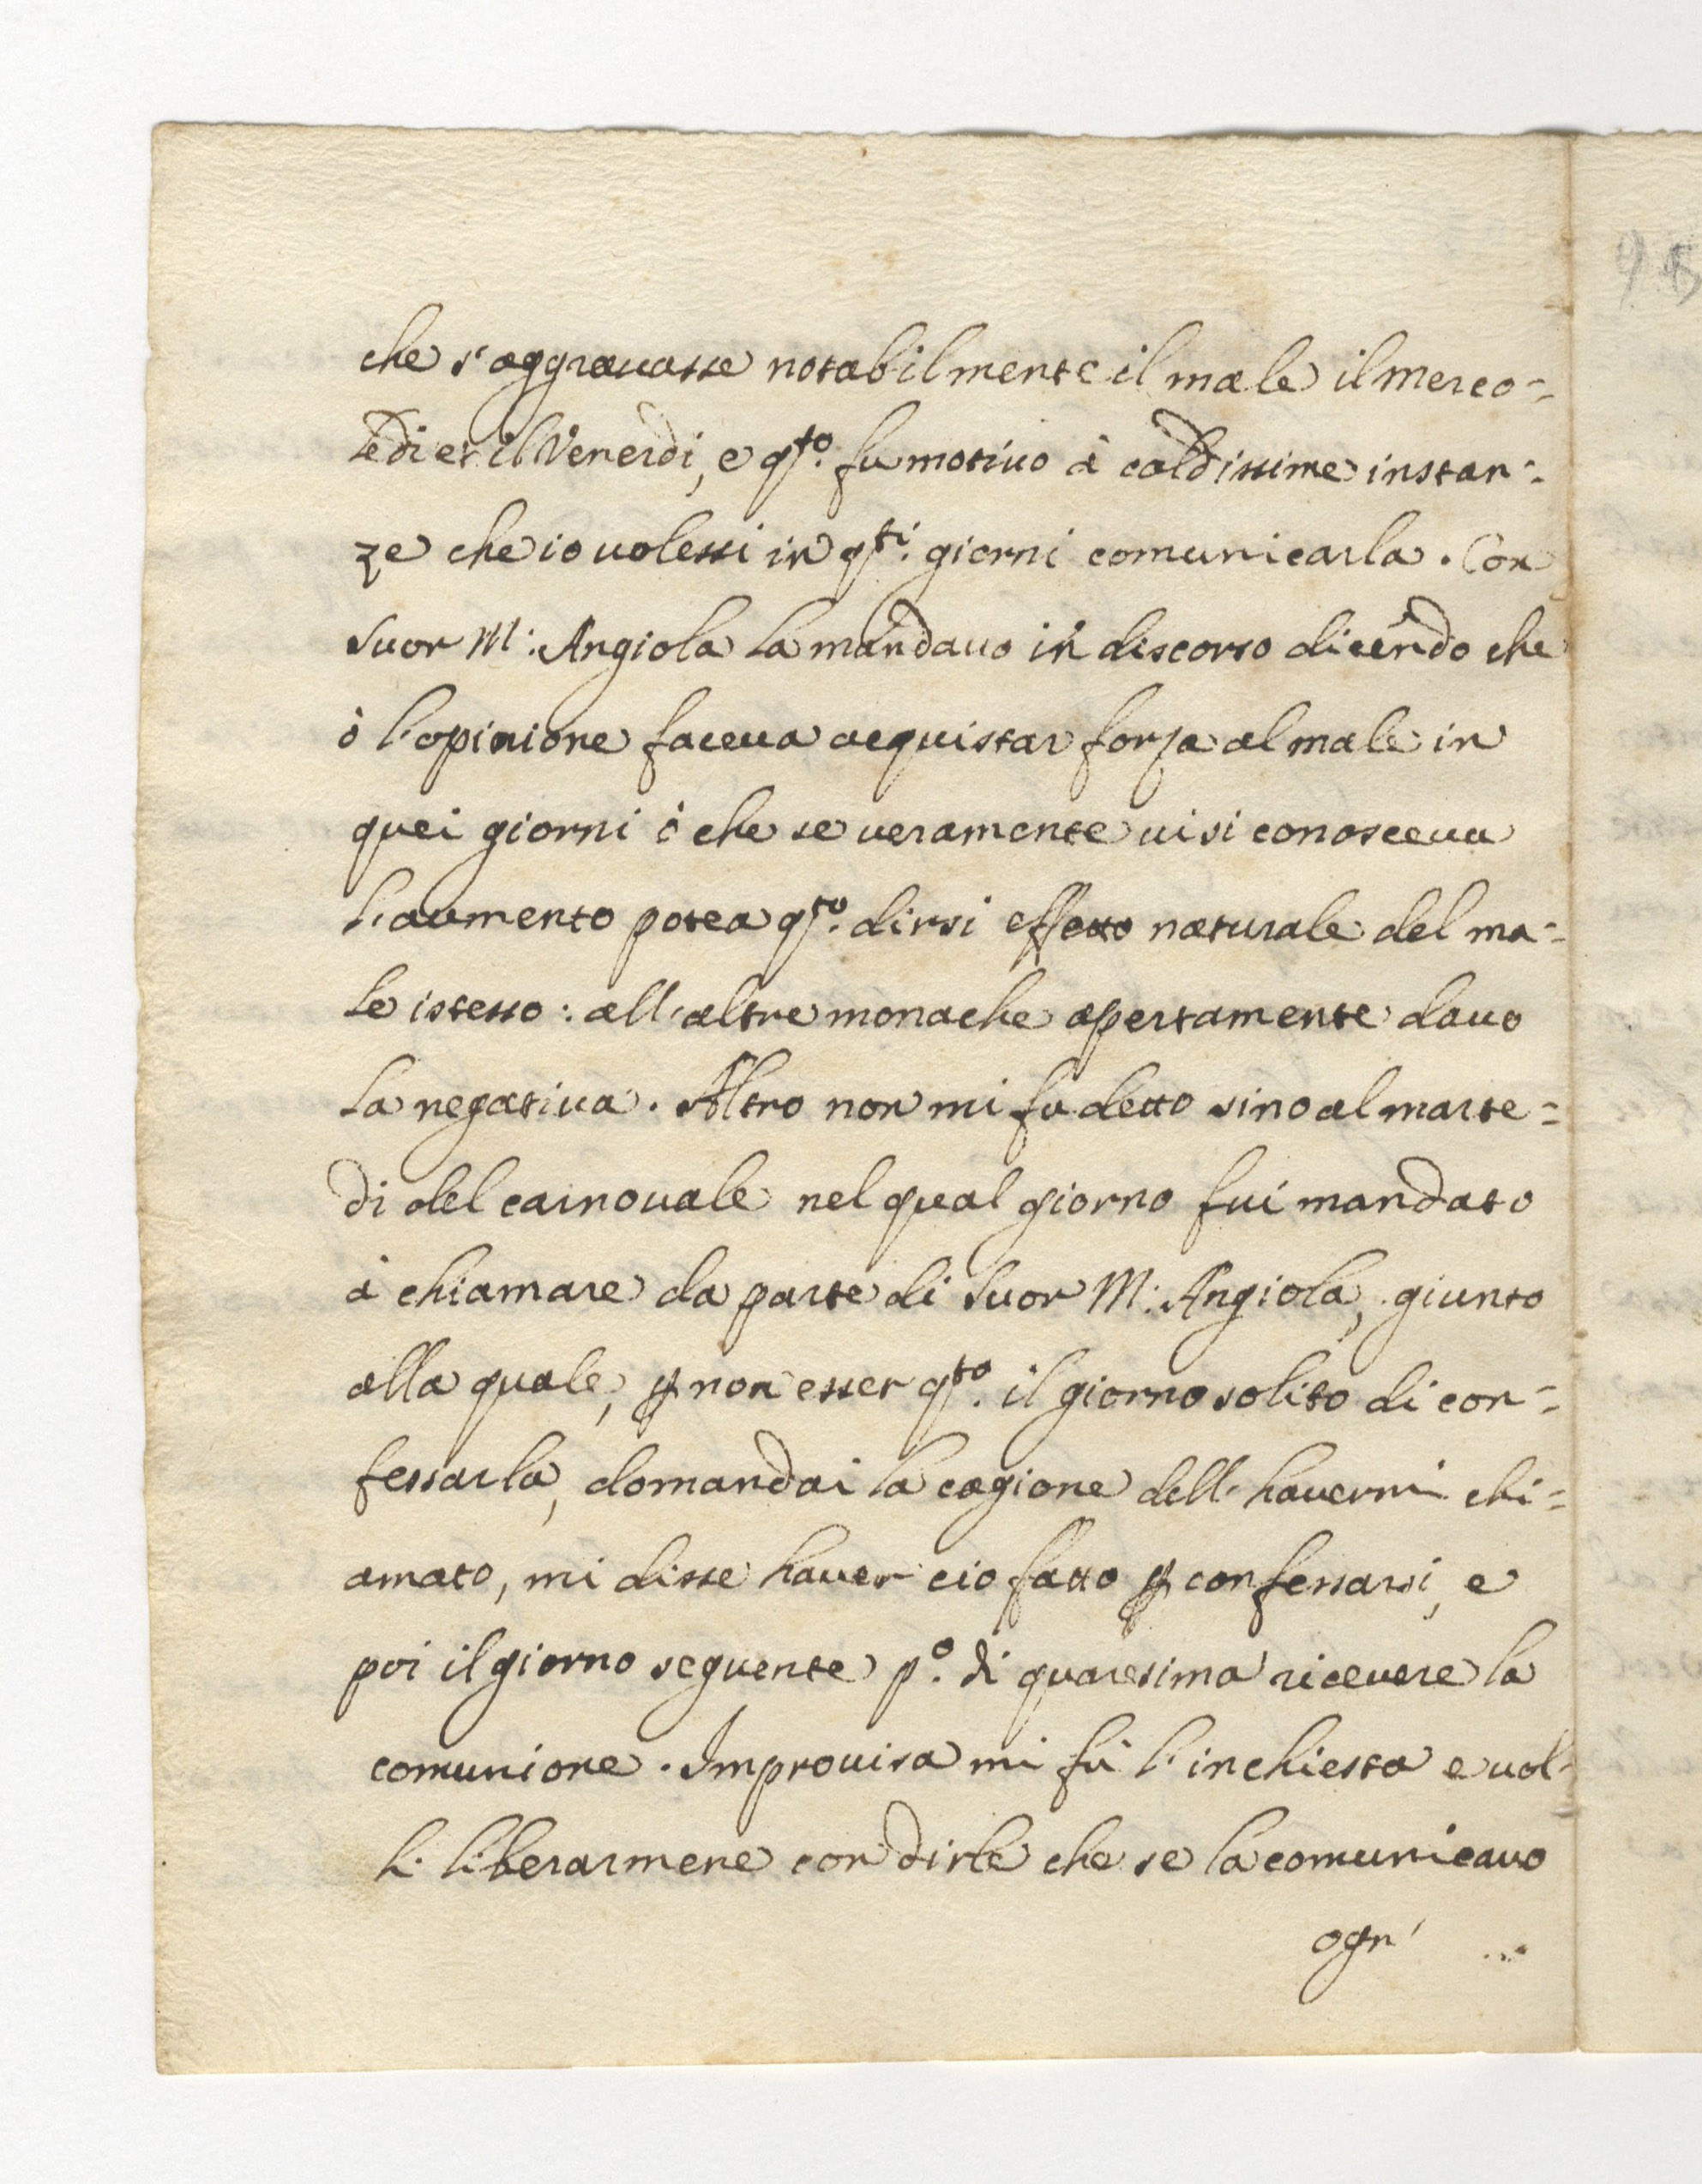 che s'aggrauasse notabilmente il male il merco=
ledi et il Venerdi, e q.sto fu motiuo à caldissime instan=
ze che io uolessi in q.sti giorni comunicarla. Con
Suor M: Angiola la mandauo in discorso dicendo che
ò l'opinione faceua acquistar forza al male in
quei giorni ò che se ueramente ui si conosceua
l'aumento potea q.sto dirsi effetto naturale del ma=
le istesso: all'altre monache apertamente dauo
la negatiua. Altro non mi fu detto sino al marte=
di del carnouale nel qual giorno fui mandato
à chiamare da parte di Suor M: Angiola, giunto
alla quale, ꝑ non esser q.sto il giorno solito di con=
fessarla, domandai la cagione dell'hauermi chi=
amato, mi disse hauer cio fatto ꝑ confessarsi, e
poi il giorno seguente p.o di quaresima riceuere la
comunione. Improuisa mi fù l'inchiesta e uol=
li liberarmene con dirle che se la comunicauo
ogn'